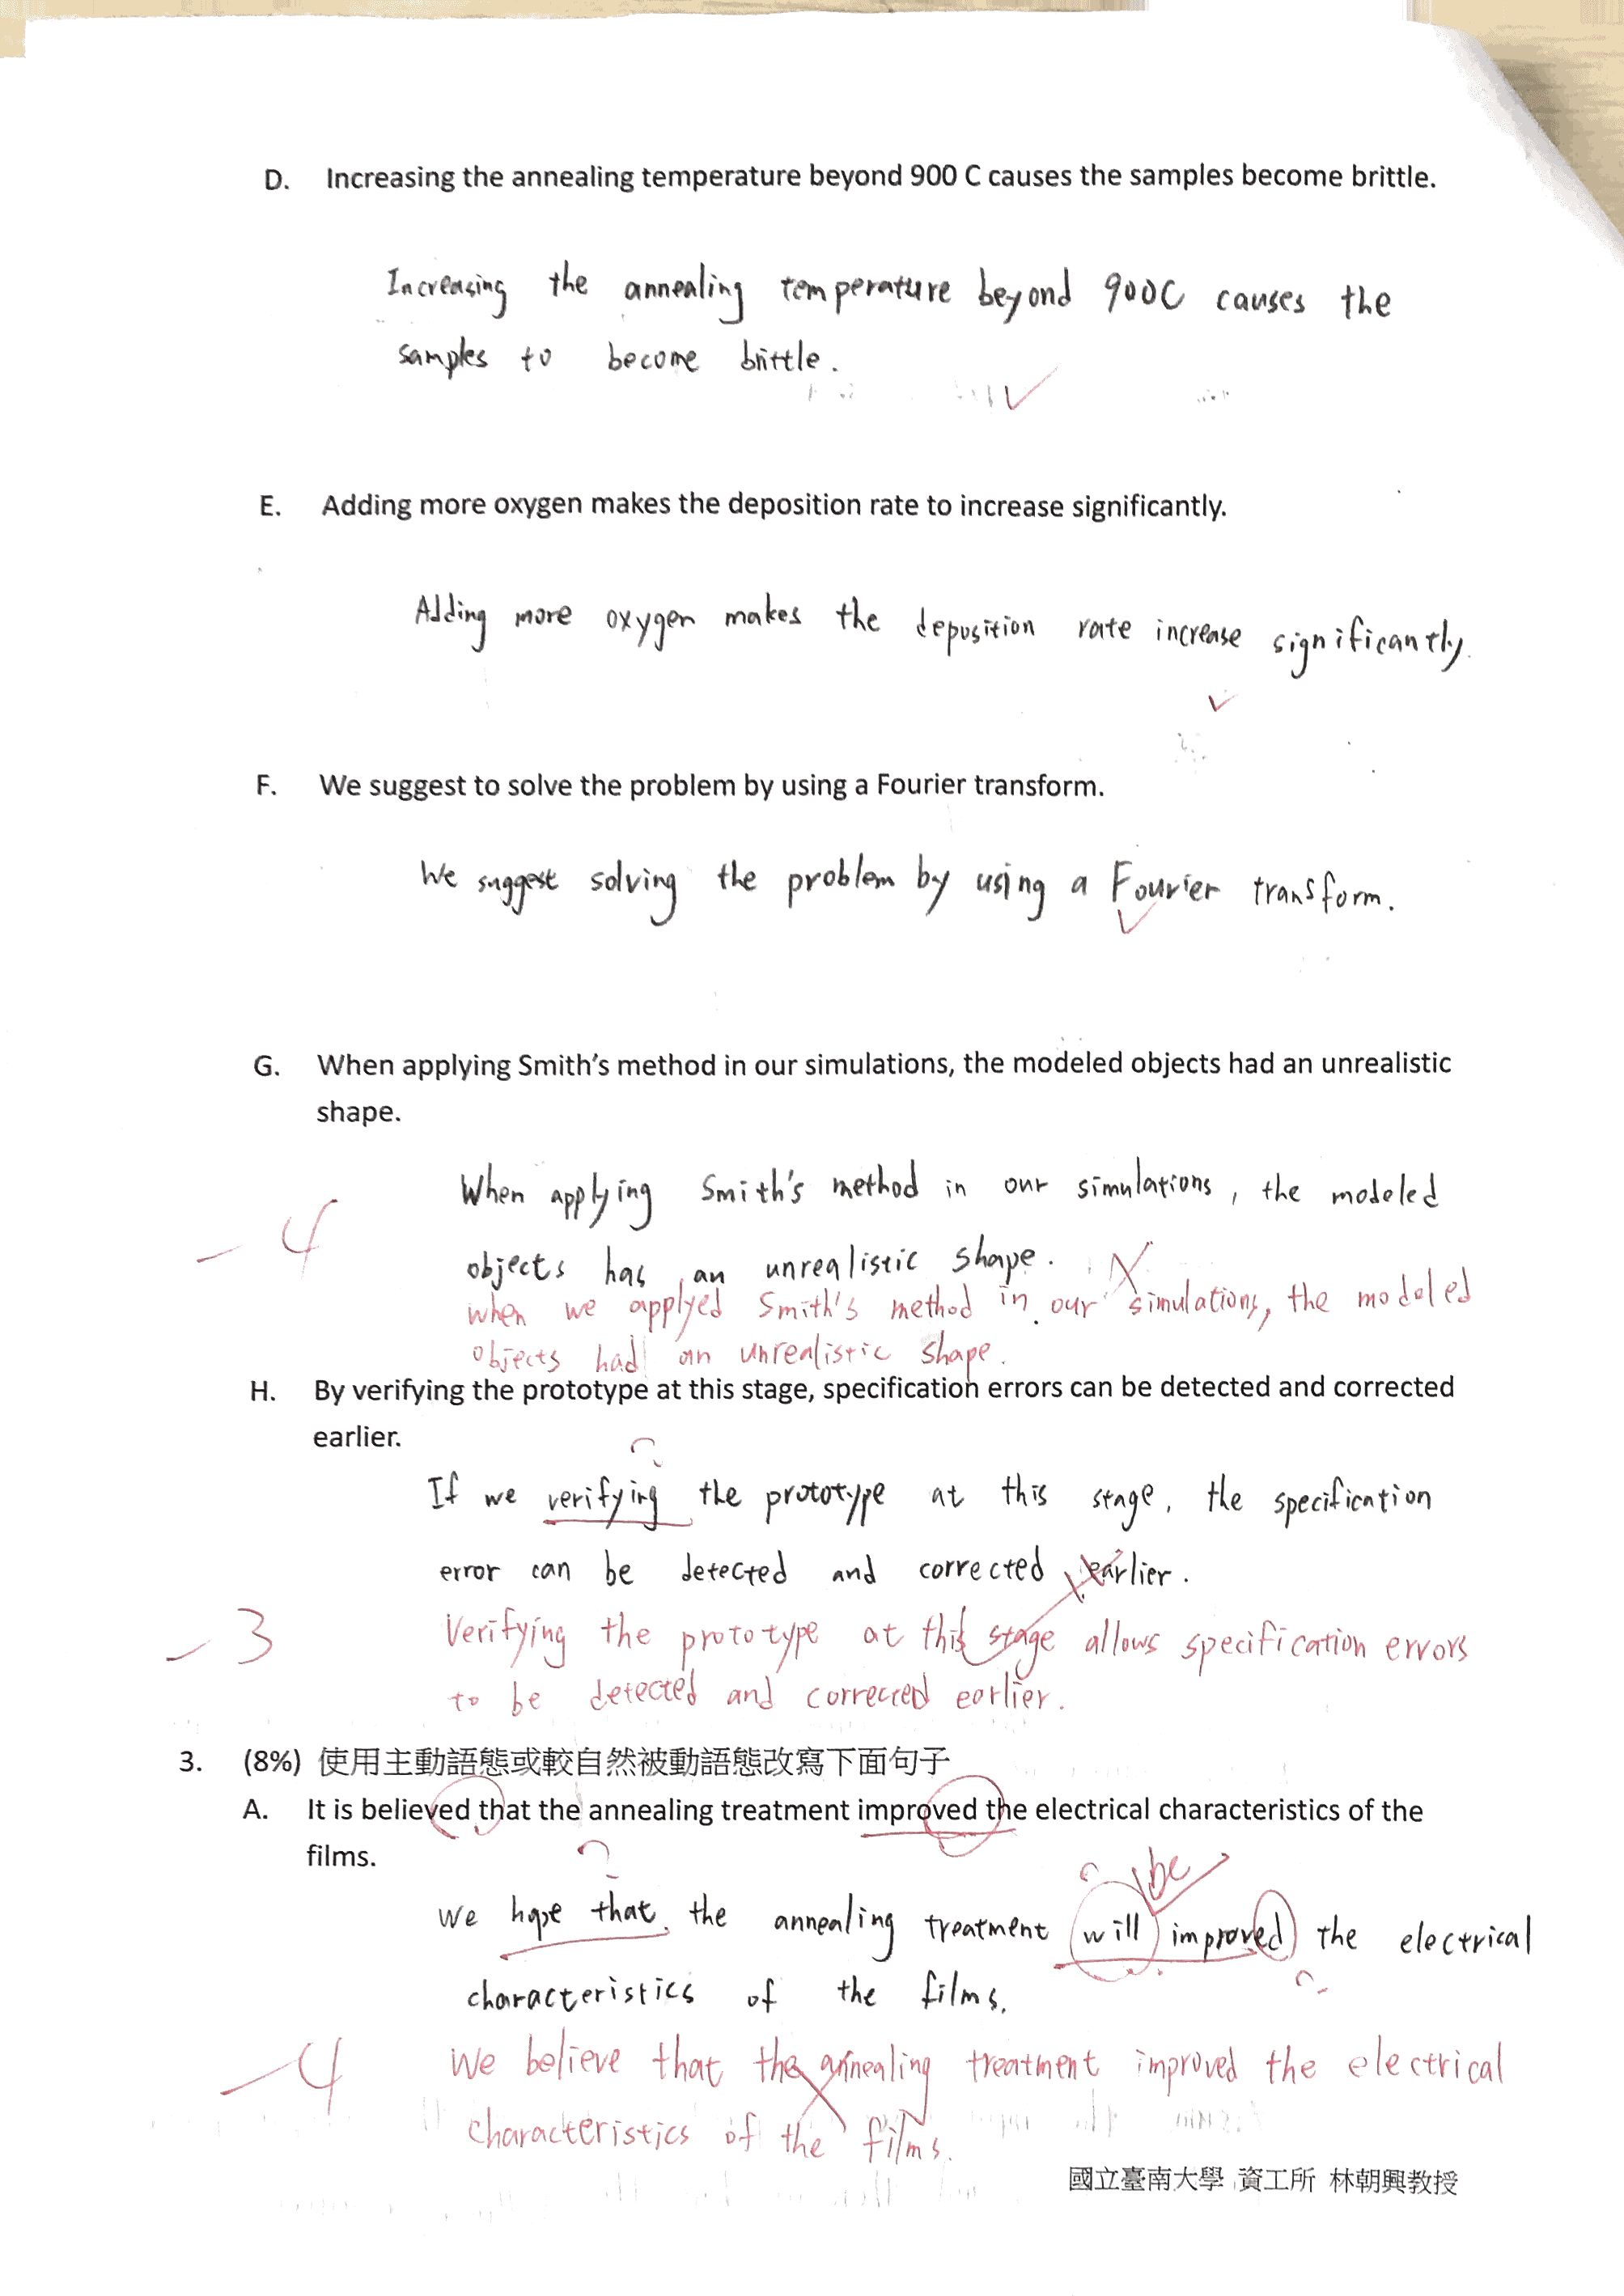 D. Increasing the annealing temperature beyond 900 C causes the samples become brittle.
Increasing the annealing temperature beyond 900C causes the
samples to become brittle.
E. Adding more oxygen makes the deposition rate to increase significantly.
Adding more oxygen makes the deposition rate increase significantly.
F. We suggest to solve the problem by using a Fourier transform.
We suggest solving the problem by using a Fourier transform.
G. When applying Smith's method in our simulations, the modeled objects had an unrealistic
shape.
When applying Smith's method in our simulations, the modeled
-4
objects has an unrealistic shape.
when we applyed Smith's method in our simulations, the modeled
objects had an unrealistic shape.
H. By verifying the prototype at this stage, specification errors can be detected and corrected
earlier.
If we verifying the prototype at this stage, the specification
error can be detected and corrected earlier.
-3
Verifying the prototype at this stage allows specification errors
to be detected and corrected earlier.
3. (8%) 使用主動語態或較自然被動語態改寫下面句子
A. It is believed that the annealing treatment improved the electrical characteristics of the
films.
be
We hope that the annealing treatment will improved the electrical
characteristics of the films.
-4
We believe that the annealing treatment improved the electrical
characteristics of the films.
國立臺南大學 資工所 林朝興教授